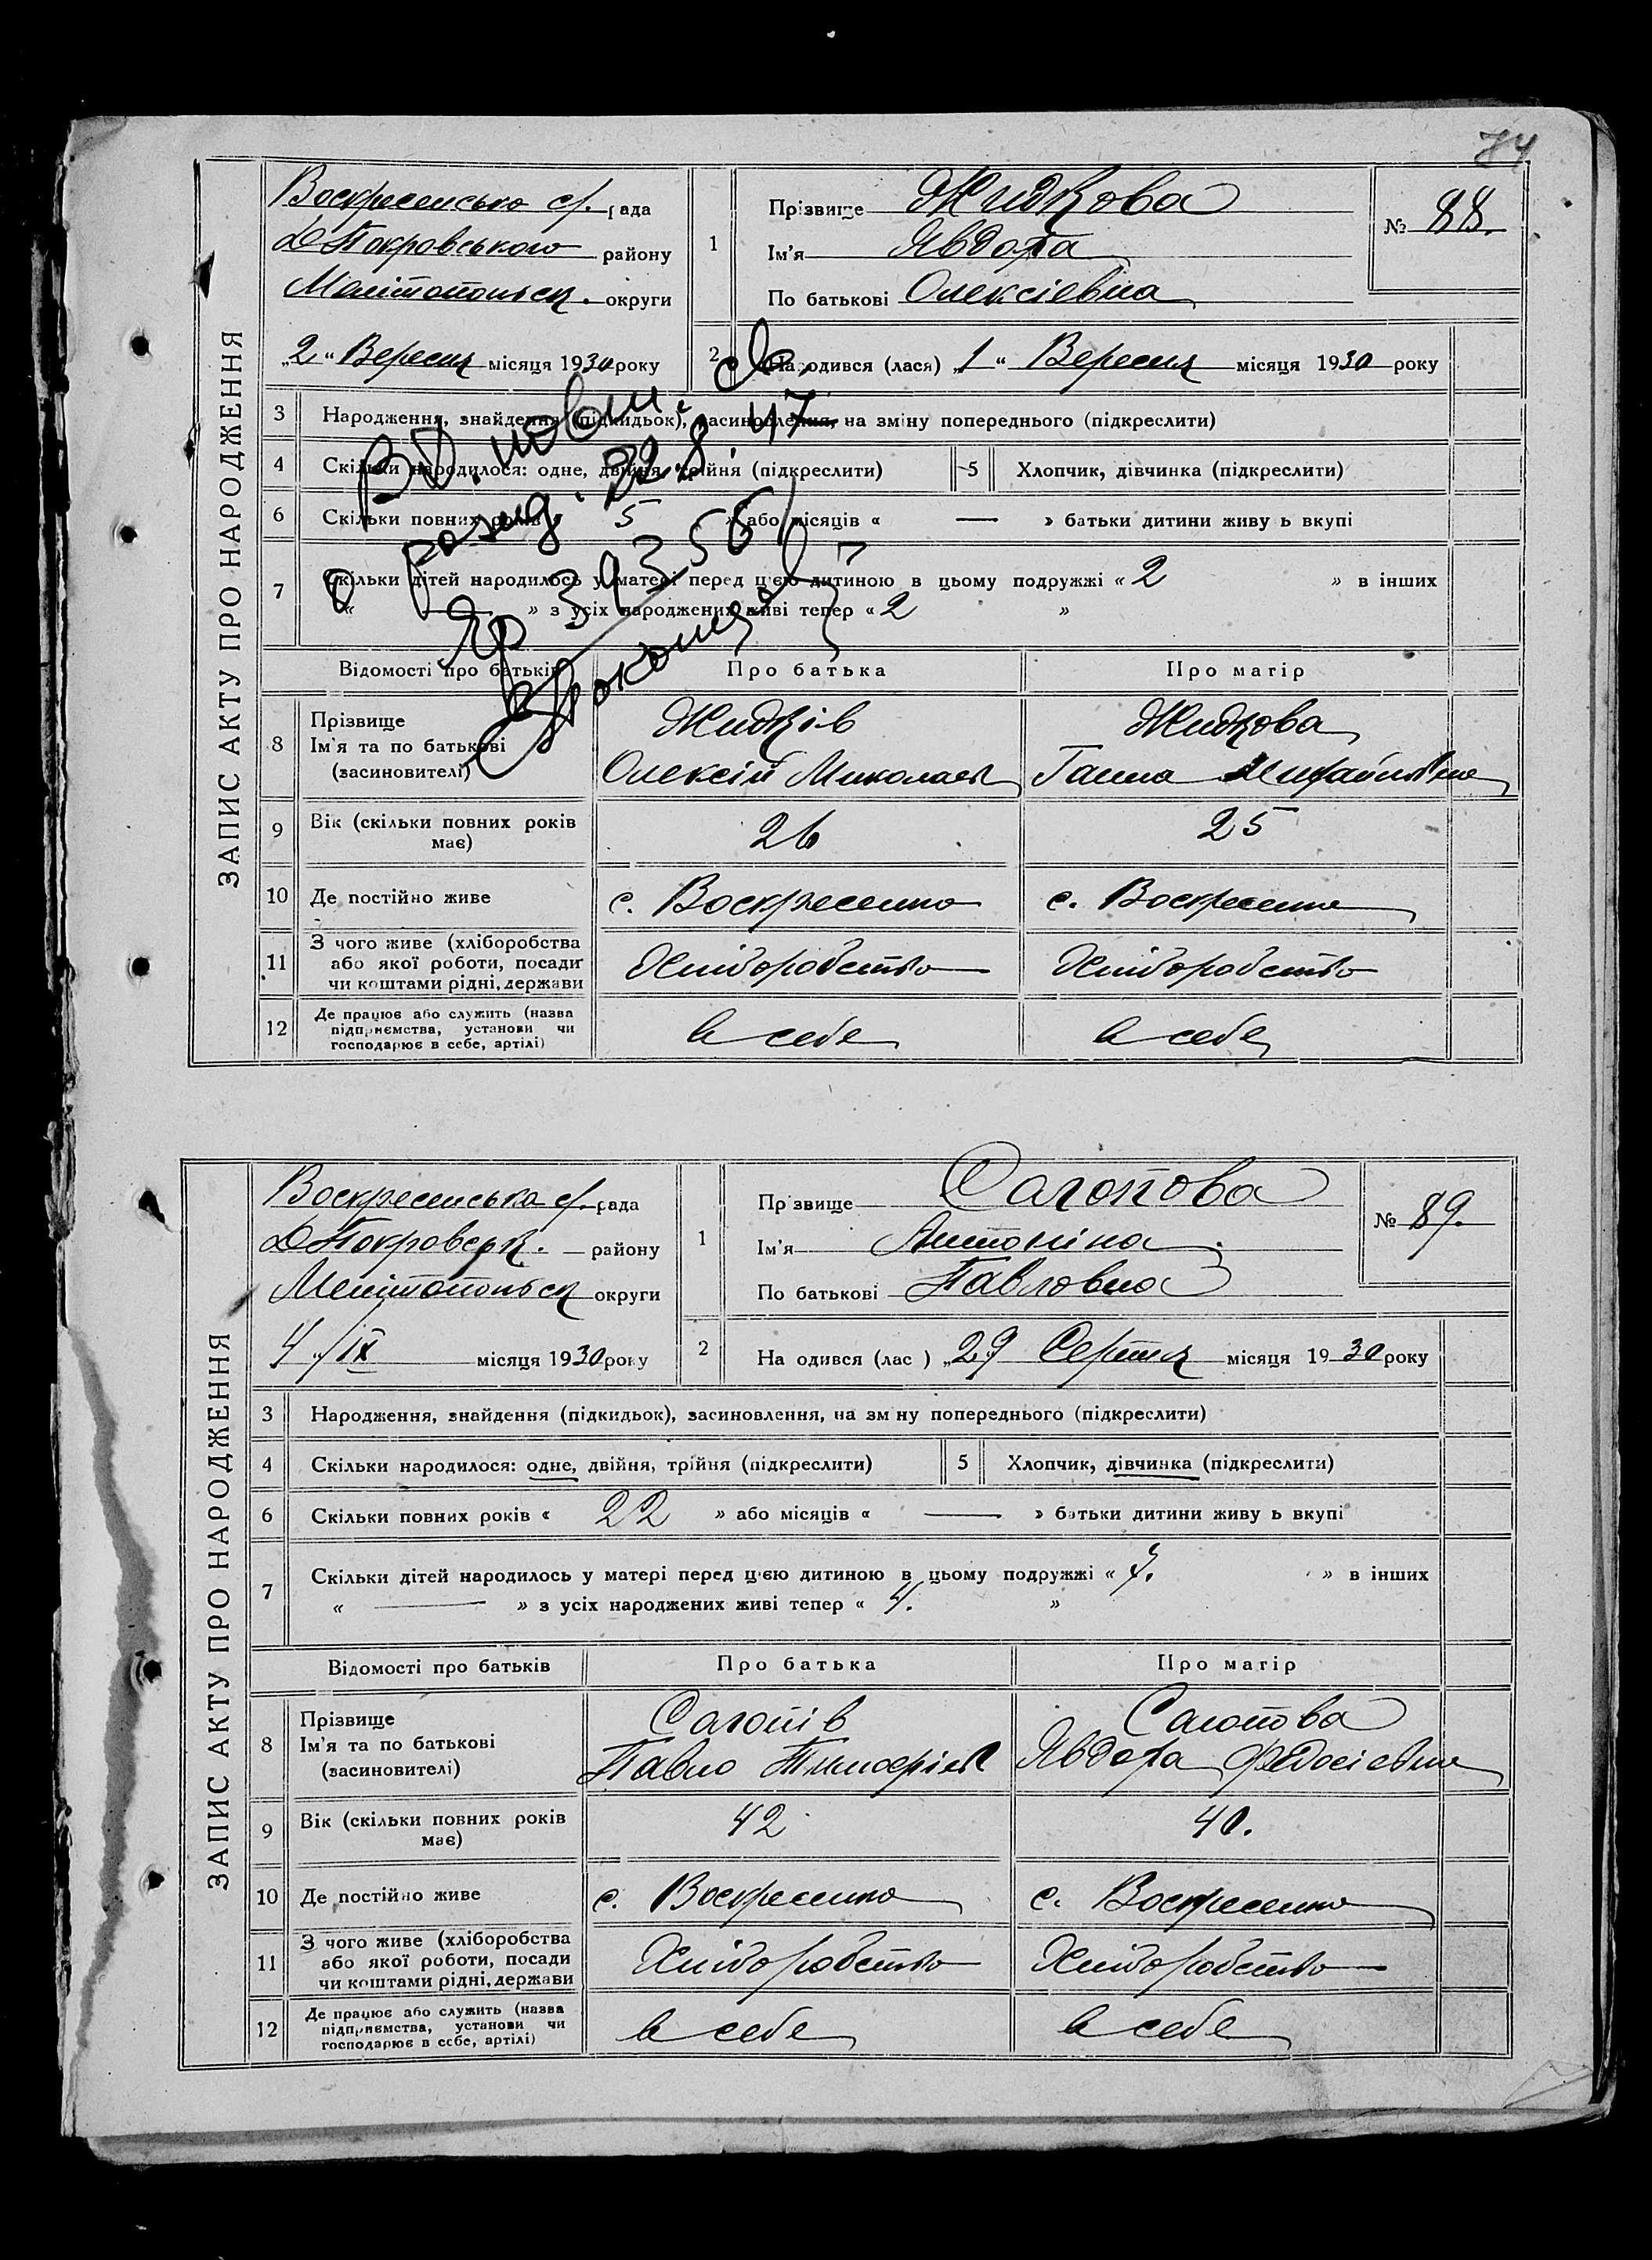 74
ЗАПИС АКТУ ПРО НАРОДЖЕННЯ
Воскресенська с/. рада
Покровського району
Мелітопольск. округи
„2" Вересня місяця 1930 року
1 Прізвище Жидкова
Ім'я Явдота
По батькові Олексієвна
№ 88.
2 Народився (лася) „1" Вересня місяця 1930 року
3 Народження, знайдення (підкидьок), засиновлення, на зміну попереднього (підкреслити)
4 Скільки народилося: одне, двійня, трійня (підкреслити)
5 Хлопчик, дівчинка (підкреслити)
6 Скільки повних років « 5 » або місяців « — » батьки дитини живу ь вкупі
7 Скільки дітей народилось у матері перед цією дитиною в цьому подружжі « 2 » в інших
« — » з усіх народжених живі тепер « 2 »
22.8.47
Відомості про батьків Про батька Про матір
8 Прізвище Жидків Жидкова
Ім'я та по батькові
(засиновителі) Олексій Миколаєв Ганна Михайлівна
9 Вік (скільки повних років має) 26 25
10 Де постійно живе с. Воскресенка с. Воскресенка
11 З чого живе (хліборобства
або якої роботи, посади
чи коштами рідні, держави Хліборобство Хліборобство
12 Де працює або служить (назва
підприємства, установи чи
господарює в себе, артілі) в себе в себе
ЗАПИС АКТУ ПРО НАРОДЖЕННЯ
Воскресенська с/. рада
Покровськ. району
Мелітопольск округи
4/IX місяця 1930 року
1 Пр звище Сагонова
Ім'я Антоніна
По батькові Павловна
№ 89.
2 На одився (лас ) „29 Серпня місяця 1930 року
3 Народження, знайдення (підкидьок), засиновлення, на зм ну попереднього (підкреслити)
4 Скільки народилося: одне, двійня, трійня (підкреслити)
5 Хлопчик, дівчинка (підкреслити)
6 Скільки повних років « 22 » або місяців « — » батьки дитини живу ь вкупі
7 Скільки дітей народилось у матері перед цією дитиною в цьому подружжі « » в інших
« — » з усіх народжених живі тепер « 4. »
Відомості про батьків Про батька Про матір
8 Прізвище
Ім'я та по батькові
(засиновителі) Павло Тимофієв Явдота Федосієвна
9 Вік (скільки повних років має) 42 40.
10 Де постійно живе с. Воскресенка с. Воскресенка
11 З чого живе (хліборобства
або якої роботи, посади
чи коштами рідні, держави Хліборобство Хліборобство
12 Де працює або служить (назва
підприємства, установи чи
господарює в себе, артілі) в себе в себе